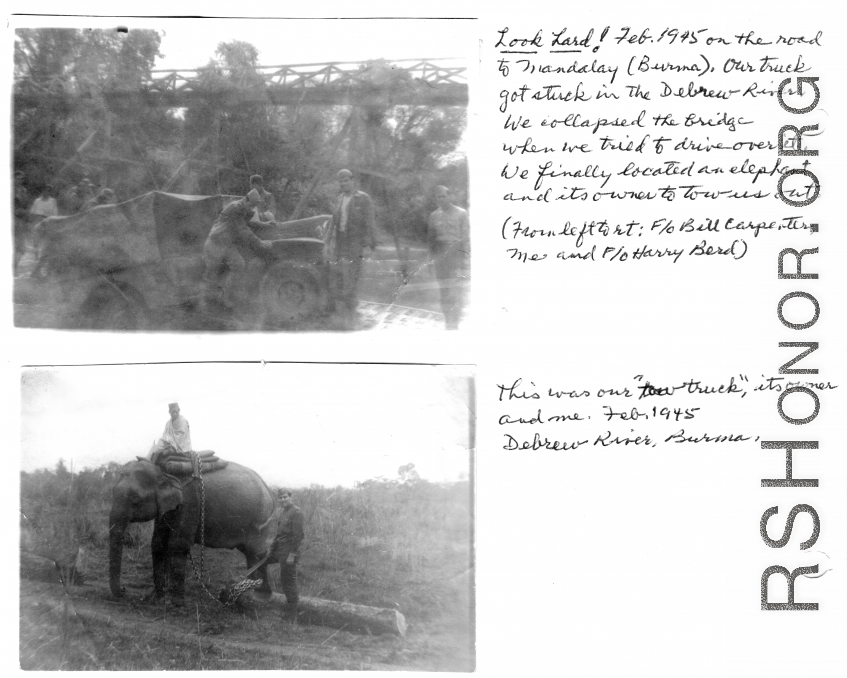 Look Hard! Feb. 1945 on the road
to Mandalay (Burma). Our truck
got stuck in the Debrew River
We collapsed the Bridge
when we tried to drive over it.
We finally located an elephant
and its owner to tow us out
(From left to rt: F/o Bill Carpenter,
Me and F/o Harry Berd)
This was our "tow truck", its owner
and me. Feb. 1945
Debrew River, Burma.
RSHONOR.ORG